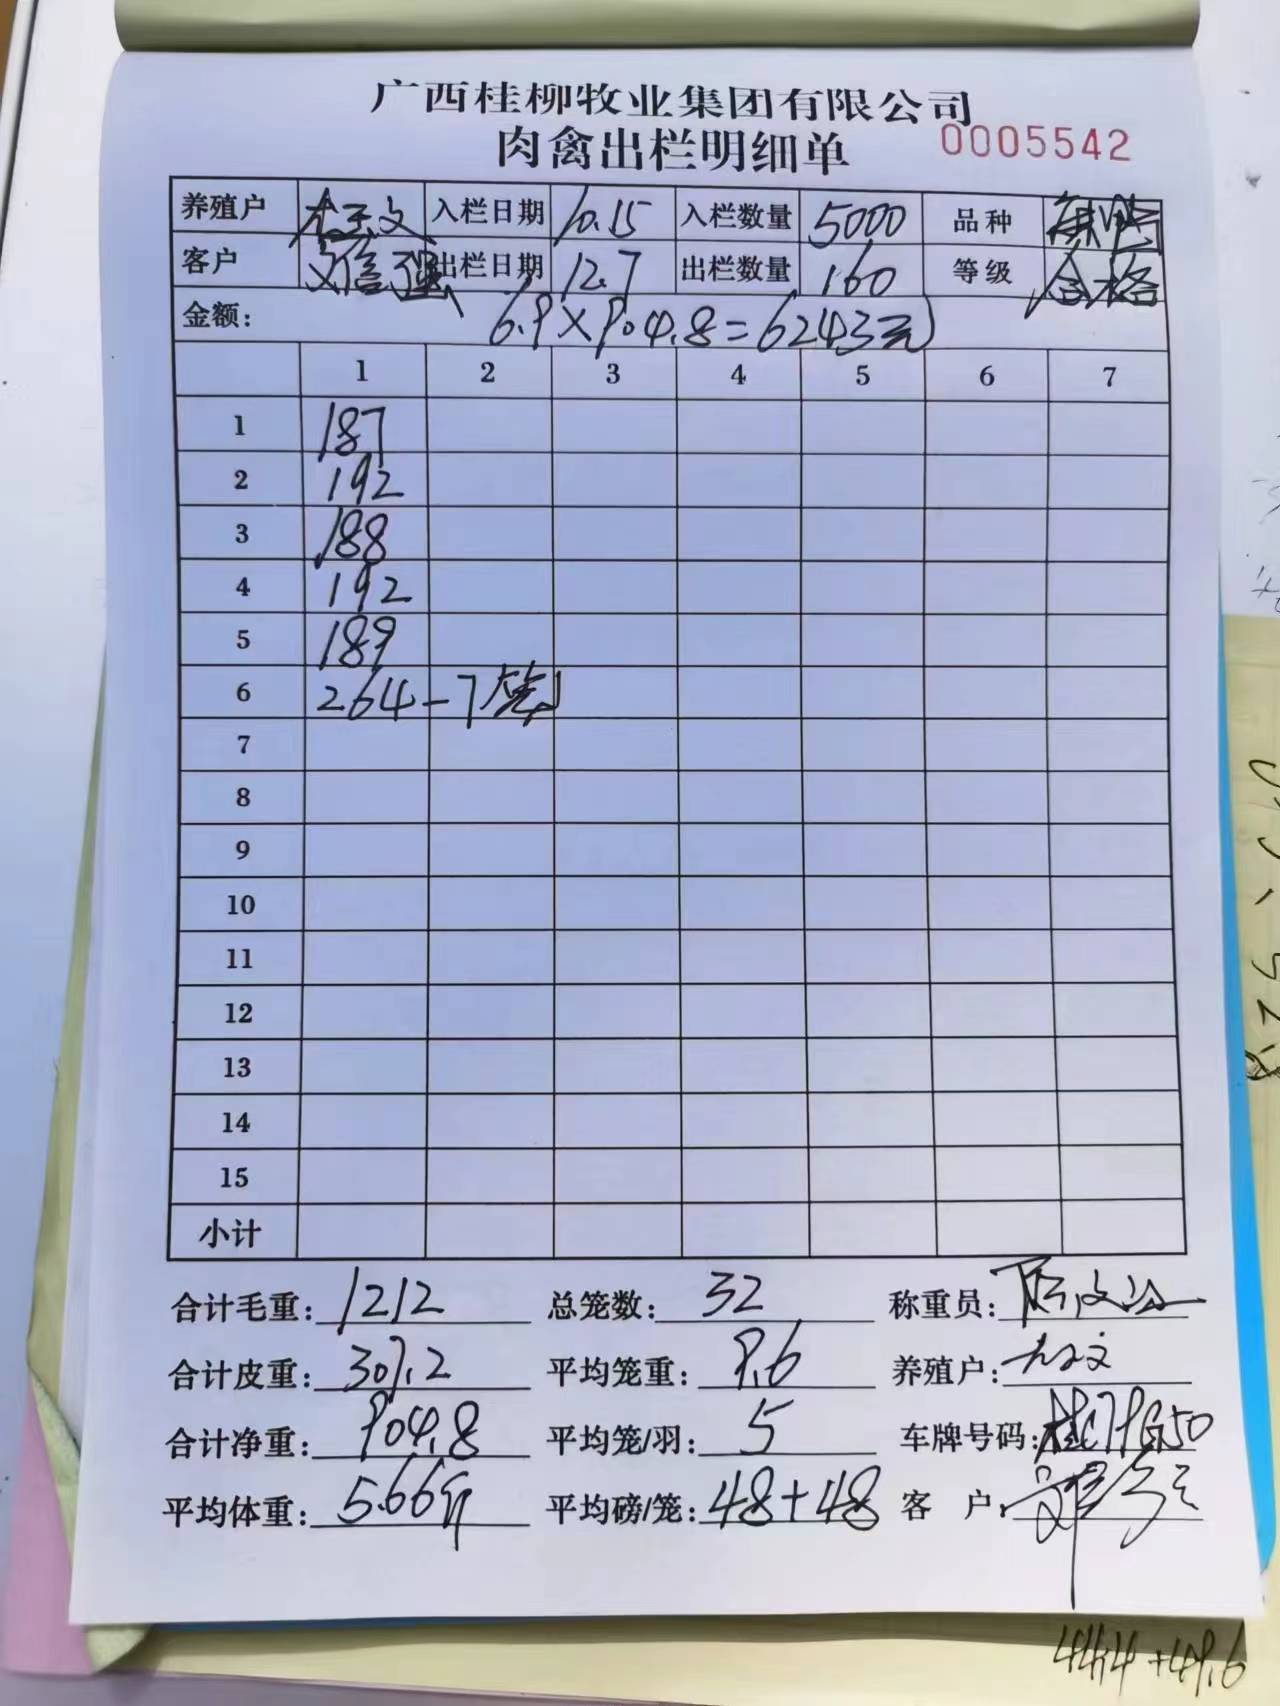 广西桂柳牧业集团有限公司
肉禽出栏明细单 0005542
养殖户 入栏日期 10.15 入栏数量 5000 品种 麻鸭
客户 出栏日期 12.7 出栏数量 160 等级 合格
金额: 6.9×904.8=6243元
1 2 3 4 5 6 7
1 187
2 192
3 188
4 192
5 189
6 264-7笼
7
8
9
10
11
12
13
14
15
小计
合计毛重: 1212 总笼数: 32 称重员:
合计皮重: 307.2 平均笼重: 9.6 养殖户:
合计净重: 904.8 平均笼/羽: 5 车牌号码:
平均体重: 5.66斤 平均磅/笼: 48+48 客 户:
44.4+49.6